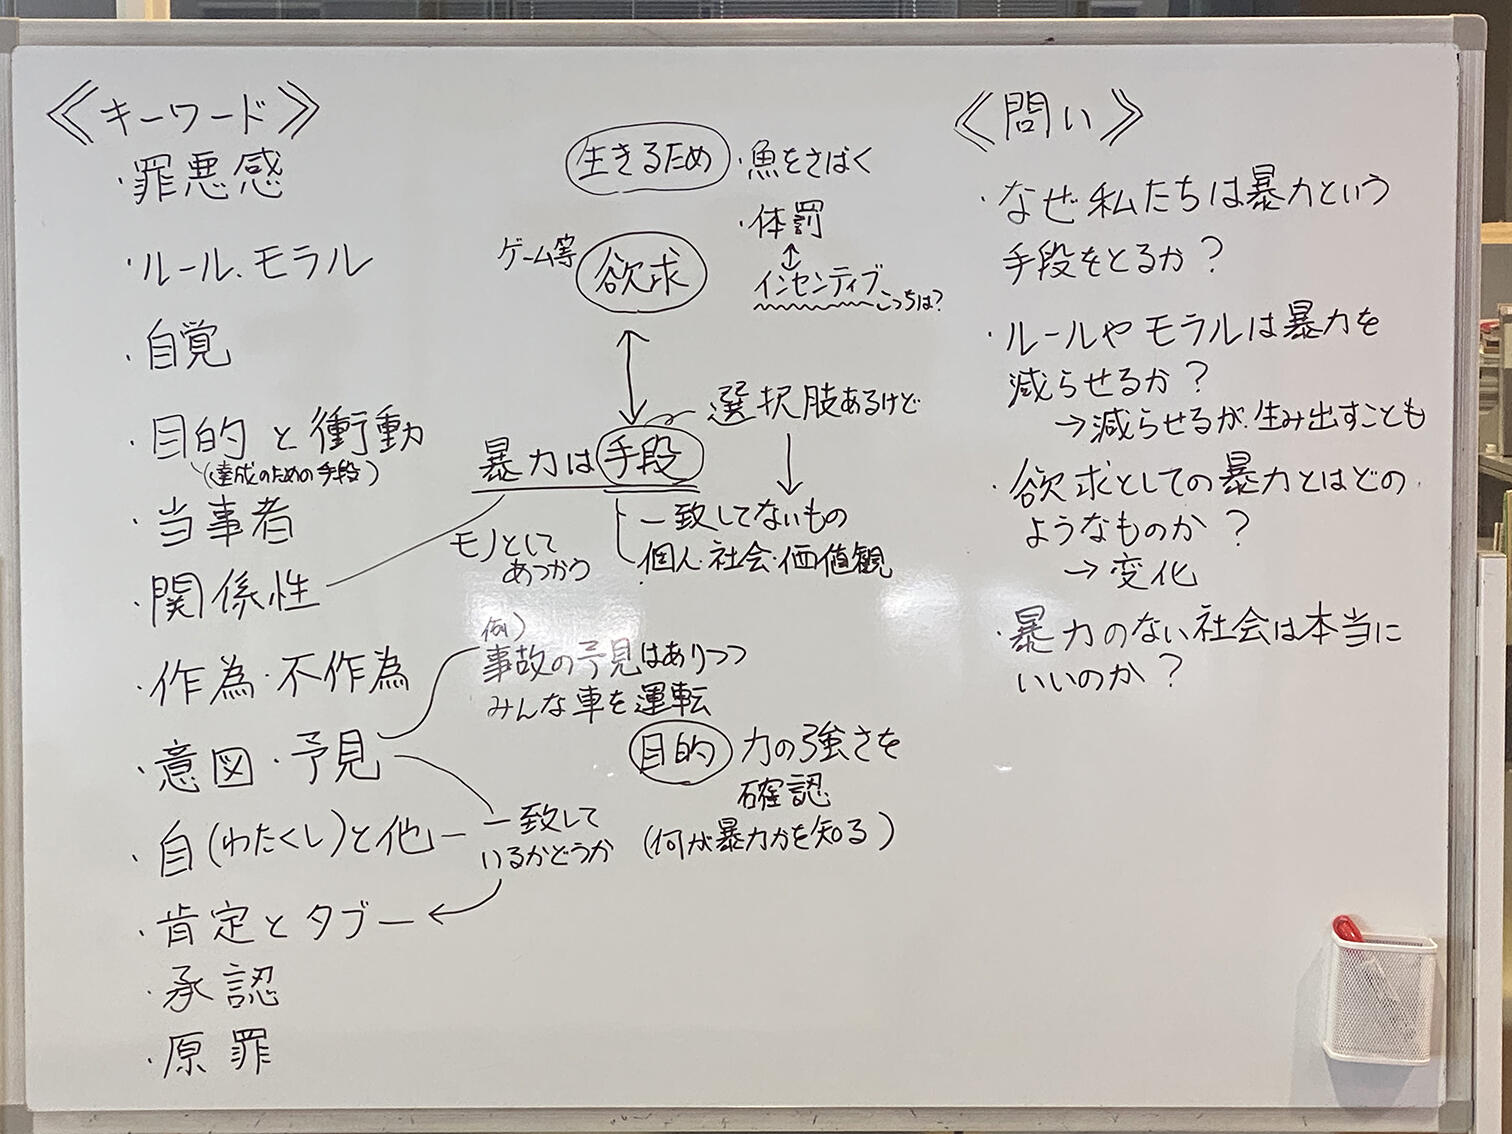 《キーワード》
・罪悪感
・ルール、モラル
・自覚
・目的と衝動
(達成のための手段)
・当事者
・関係性
・作為・不作為
・意図・予見
・自(わたくし)と他
・肯定とタブー
・承認
・原罪
生きるため
・魚をさばく
・体罰
インセンティブ
こっちは?
ゲーム等
欲求
選択肢あるけど
暴力は手段
一致してないもの
個人・社会・価値観
モノとして
あつかう
例)
事故の予見はありつつ
みんな車を運転
目的 力の強さを
確認
(何が暴力かを知る)
一致して
いるかどうか
《問い》
・なぜ私たちは暴力という
手段をとるか?
・ルールやモラルは暴力を
減らせるか?
→減らせるが、生み出すことも
・欲求としての暴力とはどの
ようなものか?
→変化
・暴力のない社会は本当に
いいのか?